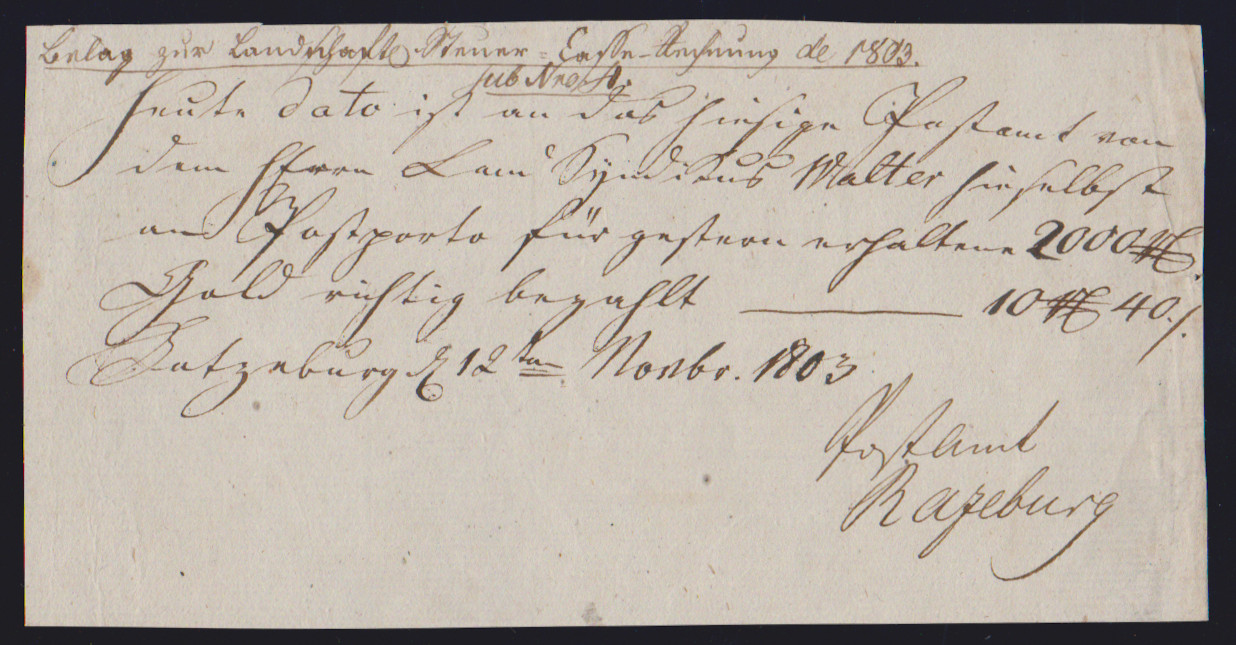 Belag zur Landschafts-Steuer-Casse-Rechnung de 1803.
sub Nro
Heute dato ist an das hiesige Postamt von
dem Herrn Land Syndikus Walter hieselbst
an Postporto für gestern erhaltene 2000 Rthl
Gold richtig bezahlt ——— 10 Rthl 40 ß.
Ratzeburg d 12ten Novbr. 1803
PostAmt
Razeburg